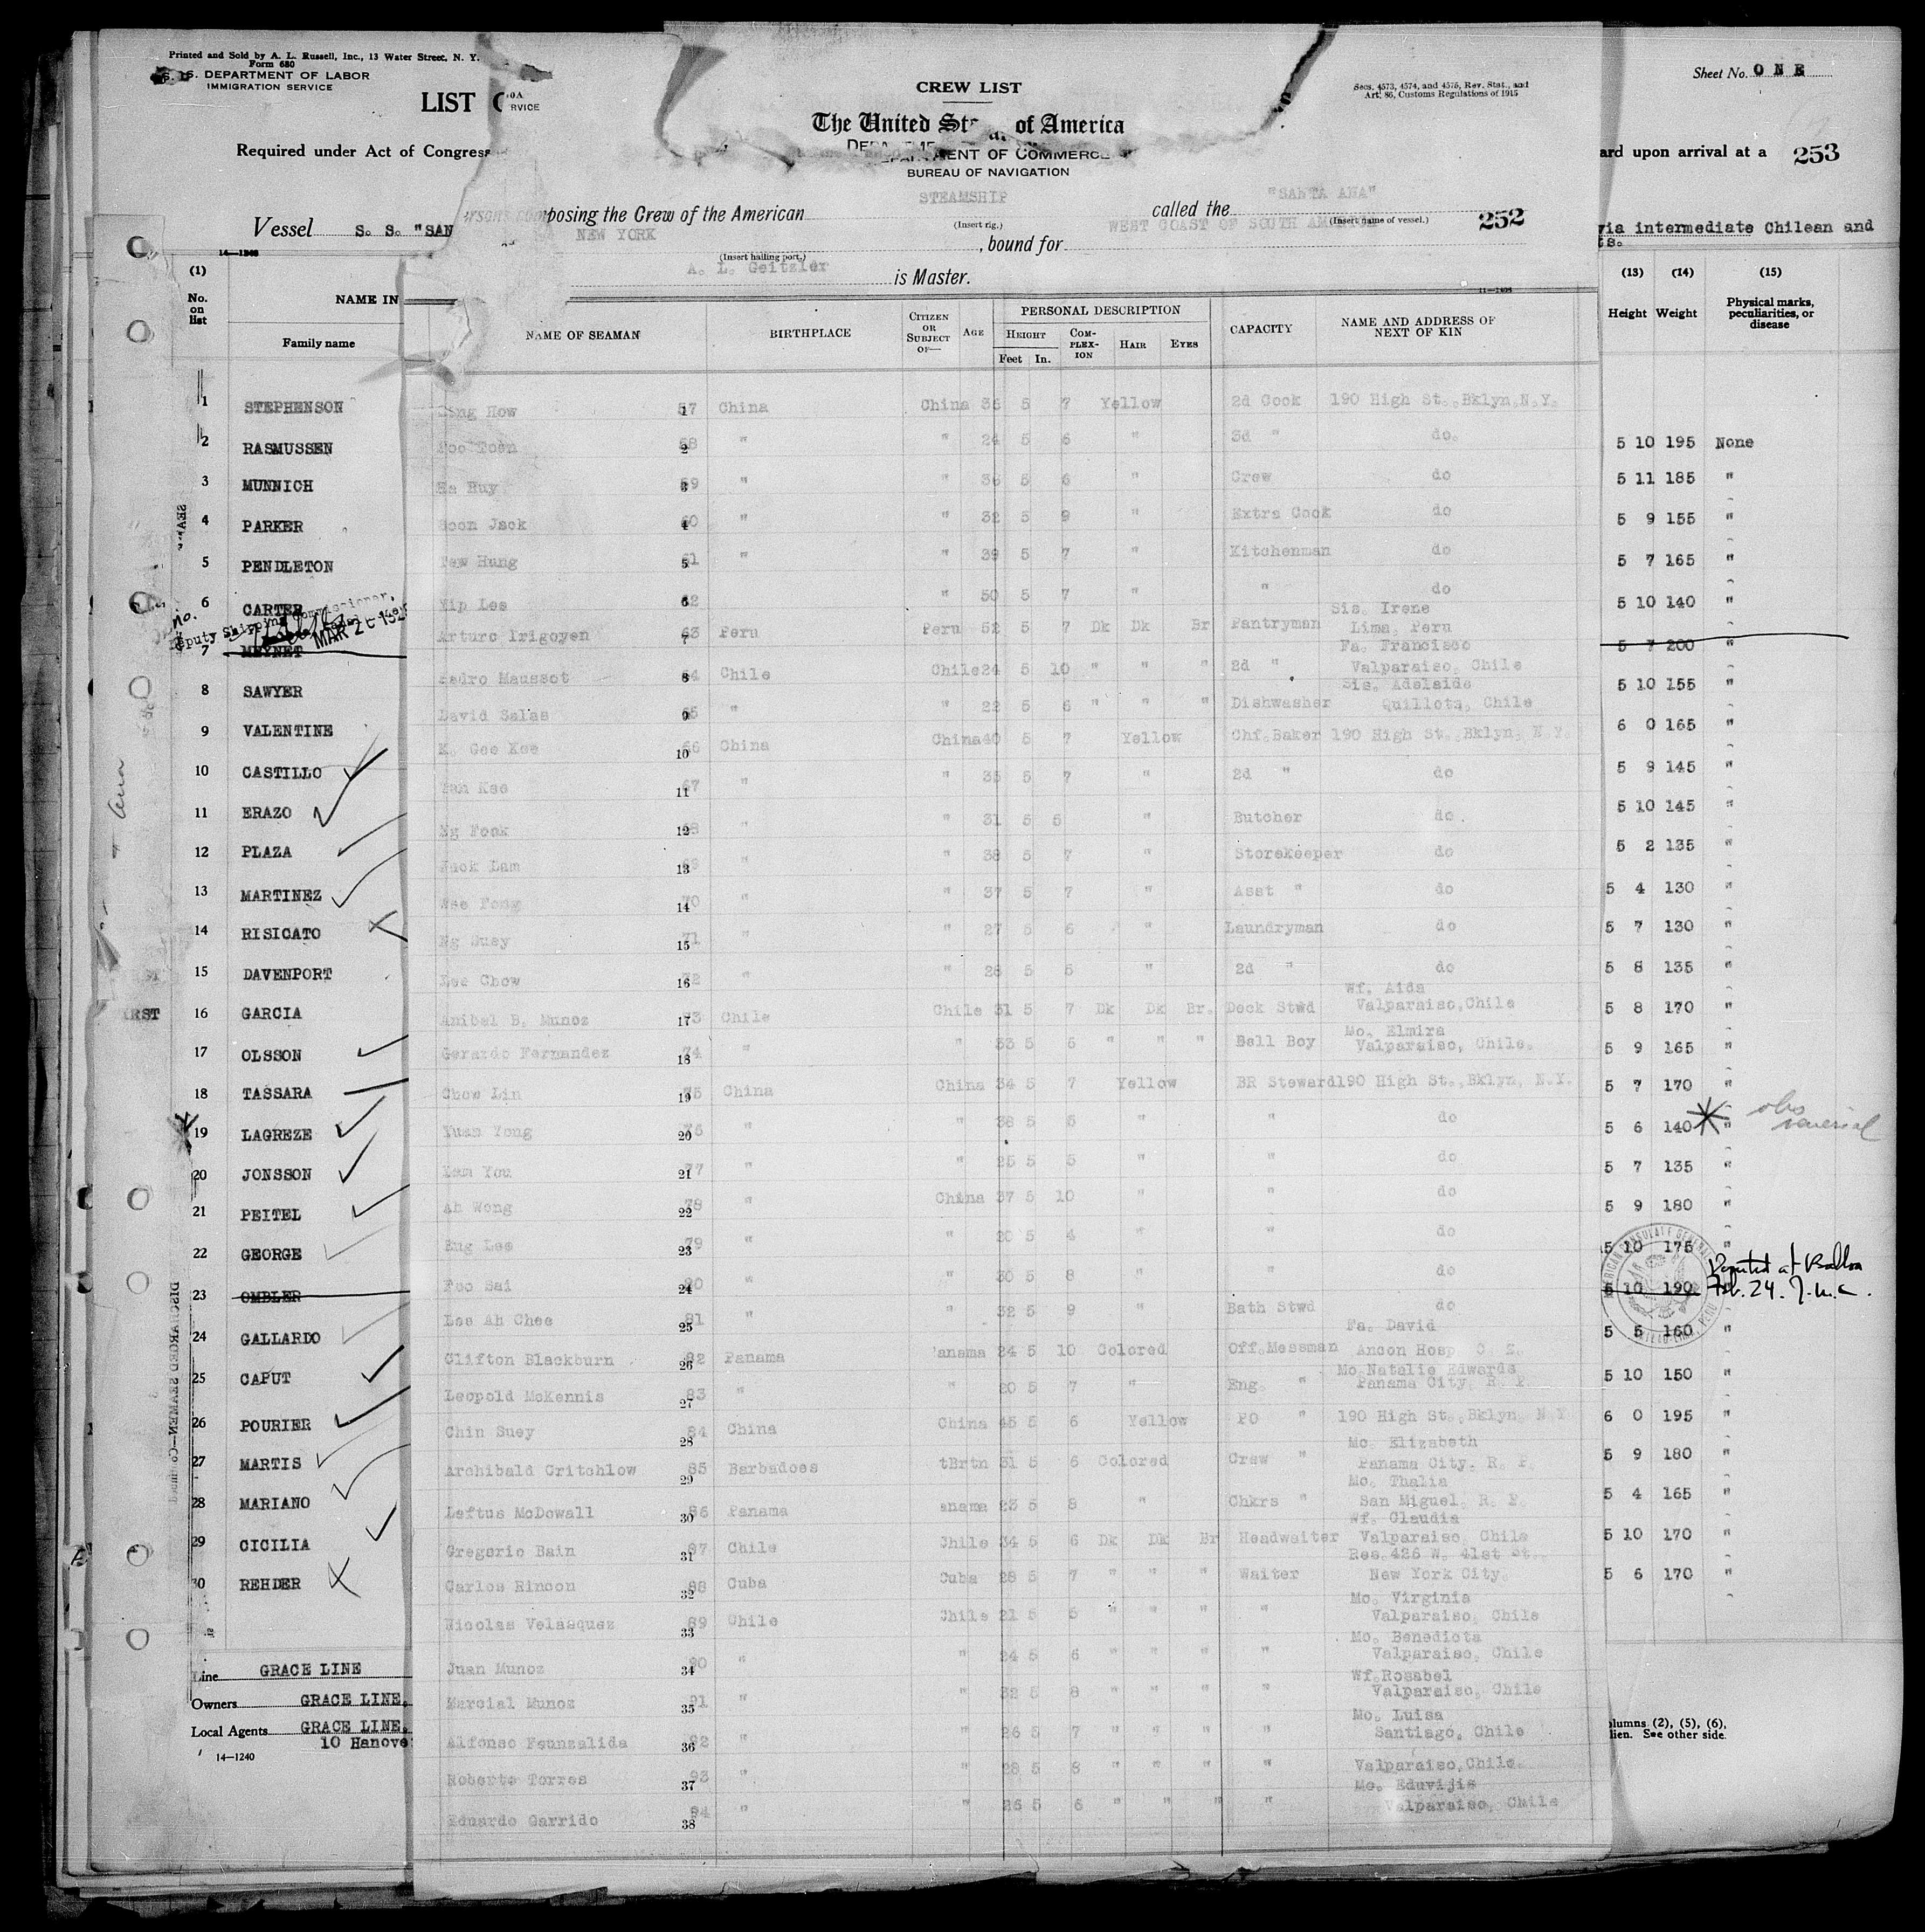 Printed and Sold by A. L. Russell, Inc., 13 Water Street, N. Y.
Form 680
S. DEPARTMENT OF LABOR
IMMIGRATION SERVICE
LIST
Required under Act of Congress
Vessel S. S. "SAN
14—1240
(1)
No. on list
NAME IN
Family name
1 STEPHENSON
2 RASMUSSEN
3 MUNNICH
4 PARKER
5 PENDLETON
6 CARTER
Deputy Shipping Commissioner,
7 MEYNET
8 SAWYER
9 VALENTINE
10 CASTILLO
11 ERAZO
12 PLAZA
13 MARTINEZ
14 RISICATO
15 DAVENPORT
16 GARCIA
17 OLSSON
18 TASSARA
19 LAGREZE
20 JONSSON
21 PEITEL
22 GEORGE
23 OMBLER
24 GALLARDO
25 CAPUT
26 POURIER
27 MARTIS
28 MARIANO
29 CICILIA
30 REHDER
Line GRACE LINE
Owners GRACE LINE,
Local Agents GRACE LINE,
10 Hanove
14—1240
DISCHARGED SEAMEN
CREW LIST
Secs. 4573, 4574, and 4575, Rev. Stat., and
Art. 86, Customs Regulations of 1915
The United St of America
DEPARTMENT OF COMMERCE
BUREAU OF NAVIGATION
posing the Crew of the American STEAMSHIP called the "SANTA ANA" 252
(Insert rig.) (Insert name of vessel.)
NEW YORK , bound for WEST COAST OF SOUTH AMERICA
(Insert hailing port.)
A. L. Geitzler is Master.
NAME OF SEAMAN BIRTHPLACE CITIZEN OR SUBJECT OF— AGE PERSONAL DESCRIPTION CAPACITY NAME AND ADDRESS OF NEXT OF KIN
HEIGHT COMPLEXION HAIR EYES
Feet In.
How 57 1 China China 36 5 7 Yellow 2d Cook 190 High St.,Bklyn,N.Y.
2 " " 24 5 6 " 3d " do.
3 " " 36 5 6 " Crew do
Soon Jack 4 " " 32 5 9 " Extra Cook do
Hung 61 5 " " 39 5 7 " Kitchenman do
Yip Lee 62 6 " 50 5 7 " " do
Arturo Irigoyen 63 7 Peru Peru 52 5 7 Dk Dk Br Pantryman Sis. Irene
Lima, Peru
Pedro Maussot 64 8 Chile Chile 24 5 10 " " " 2d " Fa. Francisco
Valparaiso, Chile
David Salas 65 9 " " 22 5 6 " " " Dishwasher Sis. Adelaide
Quillota, Chile
K. Gee Kee 66 10 China China 40 5 7 Yellow Chf.Baker 190 High St.,Bklyn, N.Y.
67 11 " " 35 5 7 " 2d " do
Ng Fook 68 12 " " 31 5 5 " Butcher do.
Jack Lam 69 13 " " 38 5 7 " Storekeeper do
Fong 70 14 " " 37 5 7 " Asst " do
Ng Suey 71 15 " " 27 5 6 " Laundryman do
Lee Chow 72 16 " " 28 5 5 " 2d " do
Anibal B. Munoz 73 17 Chile Chile 31 5 7 Dk Dk Br. Deck Stwd Wf. Aida
Valparaiso,Chile
Gerardo Fernandez 74 18 " " 33 5 5 " " " Bell Boy Mo. Elmira
Valparaiso, Chile.
Chow Lin 75 19 China China 34 5 7 Yellow BR Steward 190 High St.,Bklyn, N.Y.
Yuan Yong 76 20 " 38 5 5 " " do
You 77 21 " " 25 5 5 " " do
Ah Wong 78 22 " China 37 5 10 " " do
Lee 79 23 " " 20 5 4 " " do
Foo Sai 80 24 " " 30 5 8 " " do
Lee Ah Chee 81 25 " " 32 5 9 " Bath Stwd do
Clifton Blackburn 82 26 Panama anama 24 5 10 Colored Off.Messman Fa. David
Ancon Hosp C. Z.
Leopold McKennis 83 27 " " 20 5 7 " Eng. " Mo.Natalie Edwards
Panama City, R. P.
Chin Suey 84 28 China China 45 5 6 Yellow PO " 190 High St.,Bklyn, N Y
Archibald Critchlow 85 29 Barbadoes tBrtn 31 5 6 Colored Crew " Mo. Elizabeth
Panama City. R. P.
Loftus McDowall 86 30 Panama anama 23 5 8 " Chkrs " Mo. Thalia
San Miguel, R. P.
Gregorio Bain 87 31 Chile Chile 34 5 6 Dk Dk Br Headwaiter Wf. Claudia
Valparaiso, Chile
Carlos Rincon 88 32 Cuba Cuba 28 5 7 " " " Waiter Res.426 W. 41st St.
New York City.
Nicolas Velasquez 89 33 Chile Chile 21 5 5 " " " " Mo. Virginia
Valparaiso, Chile
Juan Munoz 90 34 " " 24 5 6 " " " " Mo. Benedicta
Valparaiso, Chile
Marcial Munoz 91 35 " " 32 5 8 " " " " Wf.Rosabel
Valparaiso, Chile
Alfonso Fuenzalida 92 36 " " 26 5 7 " " " " Mo. Luisa
Santiago, Chile
Roberto Torres 93 37 " " 28 5 8 " " " " Valparaiso,Chile.
Eduardo Garrido 94 38 " " 26 5 6 " " " " Mo. Eduvijis
Valparaiso, Chile
Sheet No. ONE
ard upon arrival at a 253
via intermediate Chilean and
ts.
(13) (14) (15)
Height Weight Physical marks, peculiarities, or disease
5 10 195 None
5 11 185 "
5 9 155 "
5 7 165 "
5 10 140 "
5 7 200 "
5 10 155 "
6 0 165 "
5 9 145 "
5 10 145 "
5 2 135 "
5 4 130 "
5 7 130 "
5 8 135 "
5 8 170 "
5 9 165 "
5 7 170 "
5 6 140 " obs venereal
5 7 135 "
5 9 180 "
5 10 175 "
5 10 190 Deported at Balboa
Feb. 24.
5 5 160 "
5 10 150 "
6 0 195 "
5 9 180 "
5 4 165 "
5 10 170 "
5 6 170 "
AMERICAN CONSULATE GENERAL
olumns (2), (5), (6),
lien. See other side.